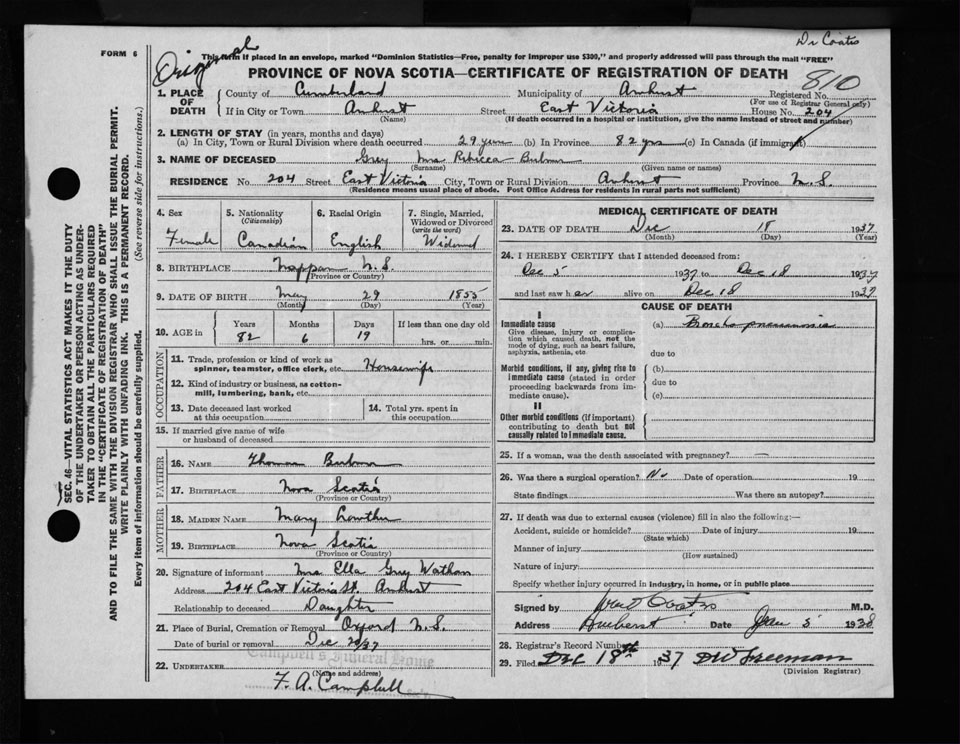 FORM 6
Dr Coates
Original
This form if placed in an envelope, marked "Dominion Statistics—Free, penalty for improper use $300," and properly addressed will pass through the mail "FREE"
PROVINCE OF NOVA SCOTIA—CERTIFICATE OF REGISTRATION OF DEATH
810
1. PLACE OF DEATH County of Cumberland Municipality of Amherst Registered No. (For use of Registrar General only)
If in City or Town Amherst (Name) Street East Victoria House No. 204
(If death occurred in a hospital or institution, give the name instead of street and number)
2. LENGTH OF STAY (in years, months and days)
(a) In City, Town or Rural Division where death occurred 29 years (b) In Province 82 yrs (c) In Canada (if immigrant)
3. NAME OF DECEASED Grey (Surname) Mrs Rebecca (Given name or names)
RESIDENCE No. 204 Street East Victoria City, Town or Rural Division Amherst Province N.S.
(Residence means usual place of abode. Post Office Address for residents in rural parts not sufficient)
4. Sex Female
5. Nationality (Citizenship) Canadian
6. Racial Origin English
7. Single, Married, Widowed or Divorced (write the word) Widowed
8. BIRTHPLACE Nappan N.S. (Province or Country)
9. DATE OF BIRTH May (Month) 29 (Day) 1855 (Year)
10. AGE in Years 82 Months 6 Days 19 If less than one day old hrs. or min.
OCCUPATION
11. Trade, profession or kind of work as spinner, teamster, office clerk, etc. Housewife
12. Kind of industry or business, as cotton-mill, lumbering, bank, etc.
13. Date deceased last worked at this occupation
14. Total yrs. spent in this occupation
15. If married give name of wife or husband of deceased
FATHER
16. NAME Thomas
17. BIRTHPLACE Nova Scotia (Province or Country)
MOTHER
18. MAIDEN NAME Mary Lowther
19. BIRTHPLACE Nova Scotia (Province or Country)
20. Signature of informant Mrs Ella Grey Wathan
Address 204 East Victoria St. Amherst
Relationship to deceased Daughter
21. Place of Burial, Cremation or Removal Oxford N.S.
Date of burial or removal Dec 20/37
Campbell's Funeral Home
22. UNDERTAKER (Name and address)
F. A. Campbell
MEDICAL CERTIFICATE OF DEATH
23. DATE OF DEATH Dec (Month) 18 (Day) 1937 (Year)
24. I HEREBY CERTIFY that I attended deceased from:
Dec 5 1937 to Dec 18 1937
and last saw her alive on Dec 18 1937
CAUSE OF DEATH
I
Immediate cause
Give disease, injury or complication which caused death, not the mode of dying, such as heart failure, asphyxia, asthenia, etc
(a) Broncho pneumonia
due to
Morbid conditions, if any, giving rise to immediate cause (stated in order proceeding backwards from immediate cause).
(b)
due to
(c)
II
Other morbid conditions (if important) contributing to death but not causally related to immediate cause.
25. If a woman, was the death associated with pregnancy? —
26. Was there a surgical operation? No Date of operation 19
State findings Was there an autopsy?
27. If death was due to external causes (violence) fill in also the following:—
Accident, suicide or homicide? (State which) Date of injury 19
Manner of injury (How sustained)
Nature of injury
Specify whether injury occurred in industry, in home, or in public place
Signed by Coates M.D.
Address Amherst Date Jan 5 1938
28. Registrar's Record Number
29. Filed Dec 18th 1937 DW Freeman (Division Registrar)
SEC. 46—VITAL STATISTICS ACT MAKES IT THE DUTY
OF THE UNDERTAKER OR PERSON ACTING AS UNDER-
TAKER TO OBTAIN ALL THE PARTICULARS REQUIRED
IN THE "CERTIFICATE OF REGISTRATION OF DEATH"
AND TO FILE THE SAME WITH THE DIVISION REGISTRAR WHO SHALL ISSUE THE BURIAL PERMIT.
WRITE PLAINLY WITH UNFADING INK. THIS IS A PERMANENT RECORD.
Every item of information should be carefully supplied. (See reverse side for instructions.)